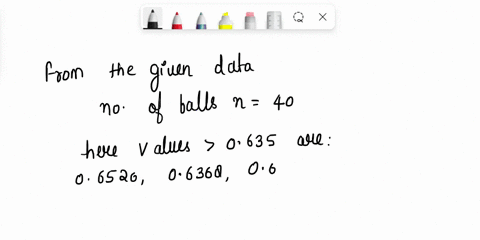 from the given data
no. of balls n = 40
here values > 0.635 are:
0.6520, 0.6368, 0.6